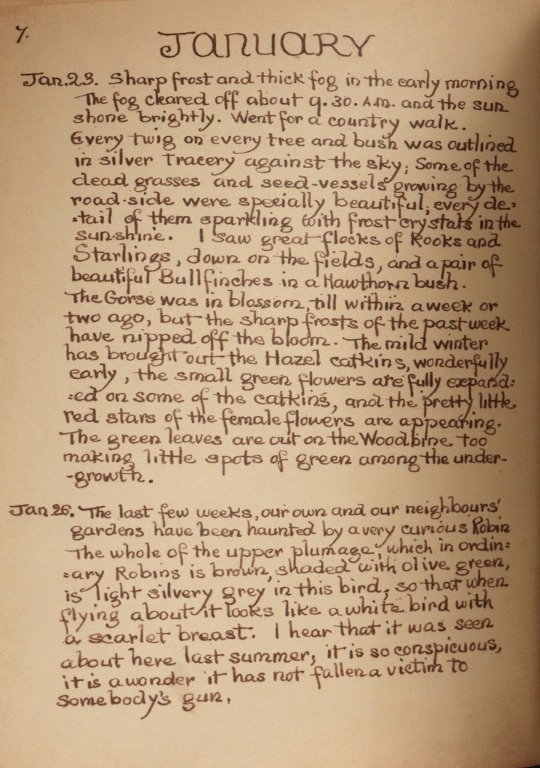 7.
JANUARY
Jan.23. Sharp frost and thick fog in the early morning
The fog cleared off about 9.30. A.M. and the sun
shone brightly. Went for a country walk.
Every twig on every tree and bush was outlined
in silver tracery against the sky; Some of the
dead grasses and seed-vessels growing by the
road-side were specially beautiful, every de:
-tail of them sparkling with frost crystals in the
sunshine. I saw great flocks of Rooks and
Starlings, down on the fields, and a pair of
beautiful Bullfinches in a Hawthorn bush.
The Gorse was in blossom, till within a week or
two ago, but the sharp frosts of the past week
have nipped off the bloom. The mild winter
has brought out the Hazel catkins, wonderfully
early, the small green flowers are fully expand:
:ed on some of the catkins, and the pretty little
red stars of the female flowers are appearing.
The green leaves are out on the Woodbine too
making little spots of green among the under-
-growth.
Jan 26. The last few weeks, our own and our neighbours'
gardens have been haunted by a very curious Robin
The whole of the upper plumage, which in ordin:
:ary Robins is brown, shaded with olive green,
is light silvery grey in this bird, so that when
flying about it looks like a white bird with
a scarlet breast. I hear that it was seen
about here last summer, it is so conspicuous,
it is a wonder it has not fallen a victim to
somebody's gun.